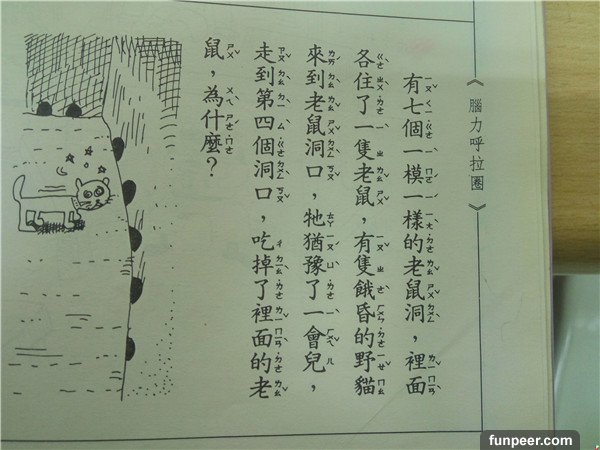 《腦力呼拉圈》
有七個一模一樣的老鼠洞，裡面
各住了一隻老鼠，有隻餓昏的野貓
來到老鼠洞口，牠猶豫了一會兒，
走到第四個洞口，吃掉了裡面的老
鼠，為什麼？
funpeer.com